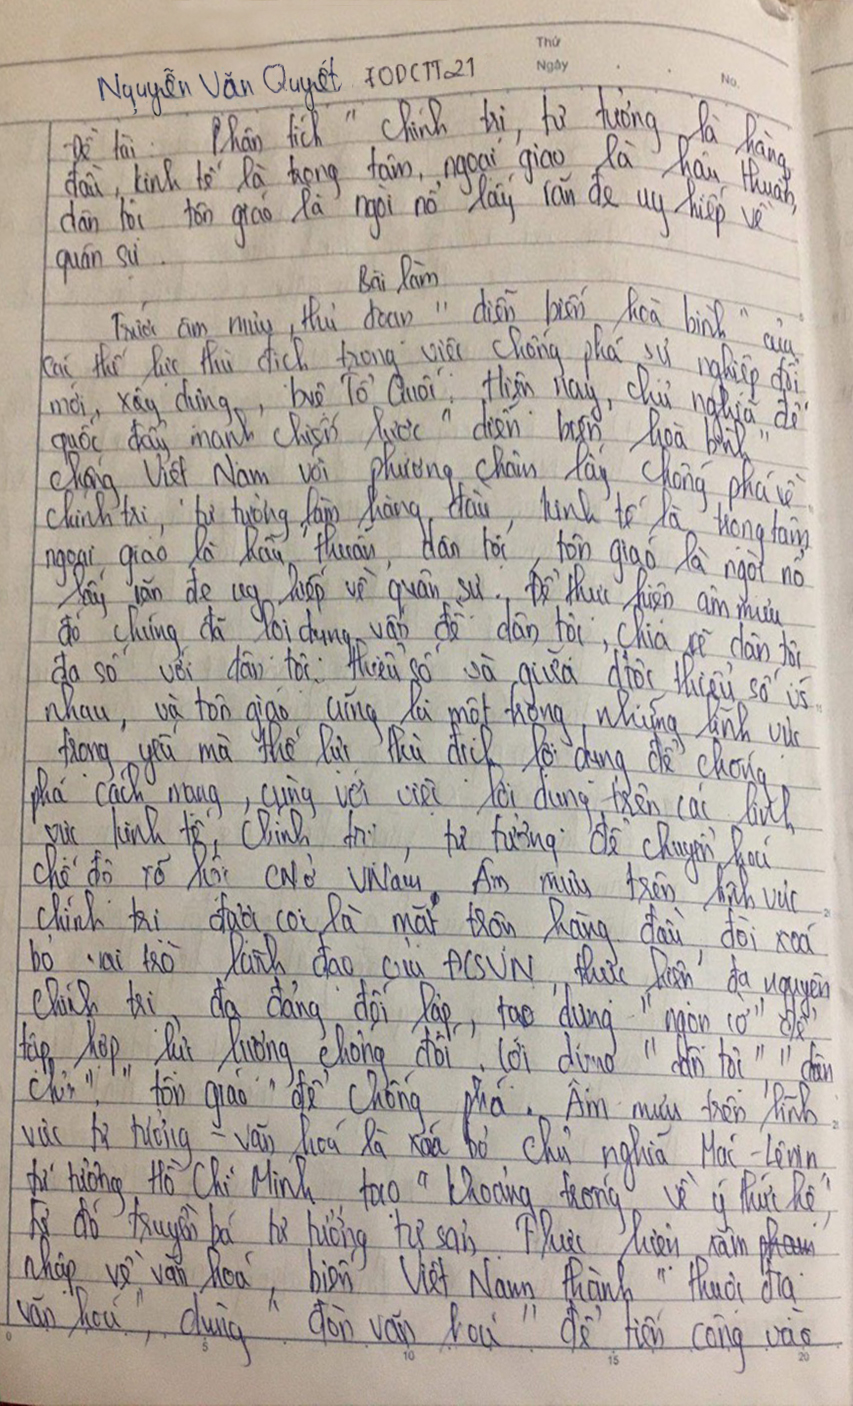 Thứ
Ngày
No.
Nguyễn Văn Quyết 70DCTT21
Đề tài: Phân tích " chính trị, tư tưởng là hàng
đầu, kinh tế là trọng tâm, ngoại giao là hậu thuẫn,
dân tộc tôn giáo là ngòi nổ lấy răn đe uy hiếp về
quân sự.
Bài làm
Trước âm mưu, thủ đoạn " diễn biến hoà bình " của
các thế lực thù địch trong việc chống phá sự nghiệp đổi
mới, xây dựng, bvệ Tổ Quốc. Hiện nay, chủ nghĩa đế
quốc đẩy mạnh chiến lược " diễn biến hoà bình"
chống Việt Nam với phương châm lấy chống phá về
chính trị, tư tưởng làm hàng đầu, kinh tế là trọng tâm
ngoại giao là hậu thuẫn, dân tộc, tôn giáo là ngòi nổ
lấy răn đe uy hiếp về quân sự. Để thực hiện âm mưu
đó chúng đã lợi dụng vấn đề dân tộc, chia rẽ dân tộc
đa số với dân tộc thiểu số và giữa dtộc thiểu số vs
nhau, và tôn giáo cũng là một trong những lĩnh vực
trọng yếu mà thế lực thù địch lợi dụng để chống
phá cách mạng, cùng với việc lợi dụng trên các lĩnh
vực kinh tế, chính trị, tư tưởng để chuyển hoá
chế độ xã hội CN ở VNam. Âm mưu trên lĩnh vực
chính trị được coi là mặt trận hàng đầu đòi xoá
bỏ vai trò lãnh đạo của ĐCSVN, thực hiện đa nguyên
chính trị, đa đảng đối lập, tạo dựng "ngọn cờ" để
tập hợp lực lượng chống đối, lợi dụng "dân tộc" "dân
chủ", " tôn giáo " để chống phá. Âm mưu trên lĩnh
vực tư tưởng - văn hoá là xoá bỏ chủ nghĩa Mác - Lênin
tư tưởng Hồ Chí Minh tạo " khoảng trống về ý thức hệ",
từ đó truyền bá tư tưởng tư sản. Thực hiện xâm
nhập về văn hoá, biến Việt Nam thành " thuộc địa
văn hoá ", dùng " đòn văn hoá " để tiến công vào
0 5 10 15 20